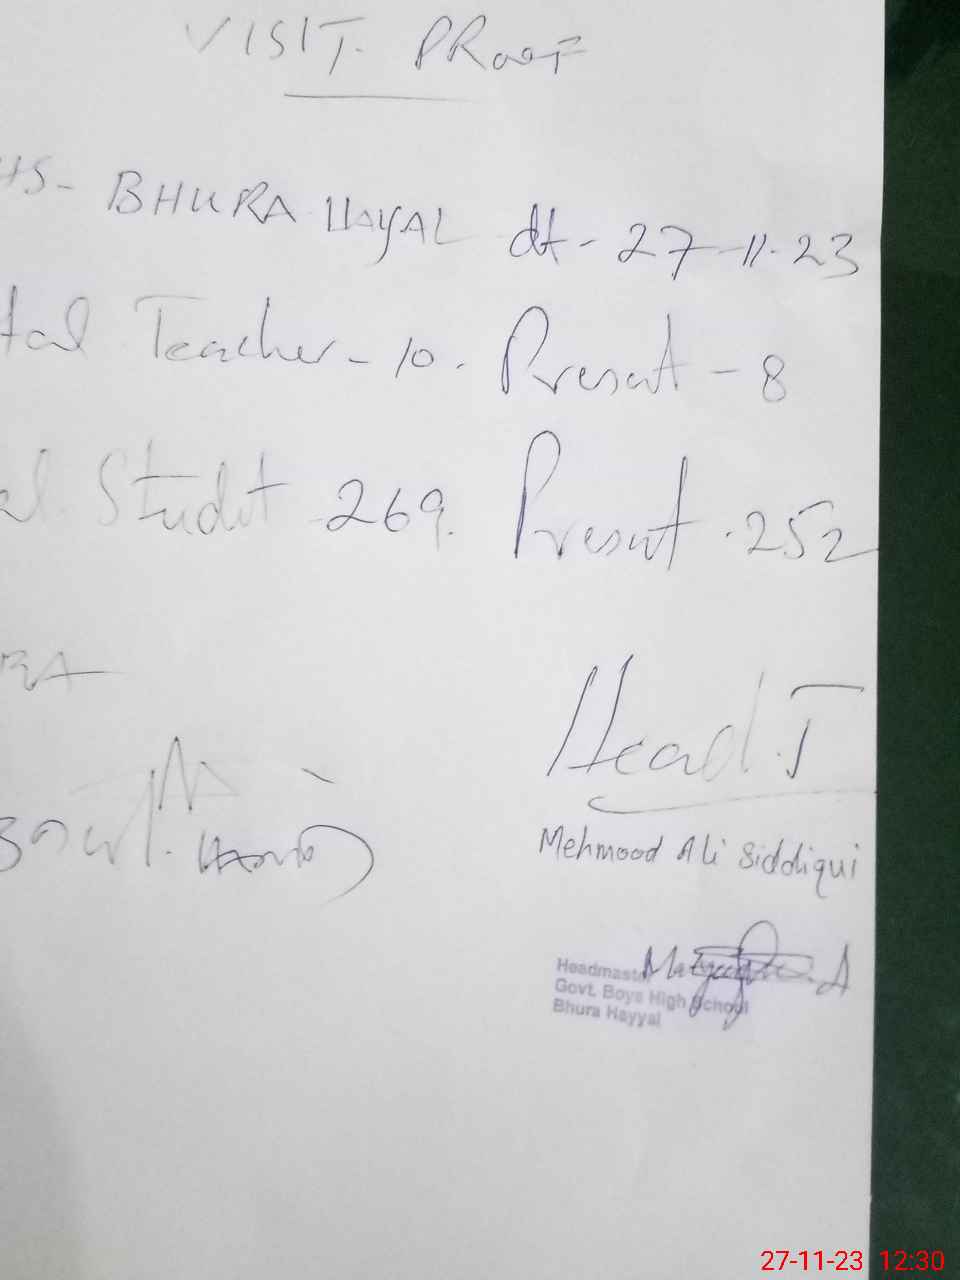 VISIT PROOF
HS- BHURA HAYAL dt- 27-11-23
tal Teacher - 10. Present - 8
al Studt 269. Present .252
RA
Head.T
Mehmood Ali Siddiqui
Headmaster
Govt. Boys High School
Bhura Hayyal
27-11-23 12:30